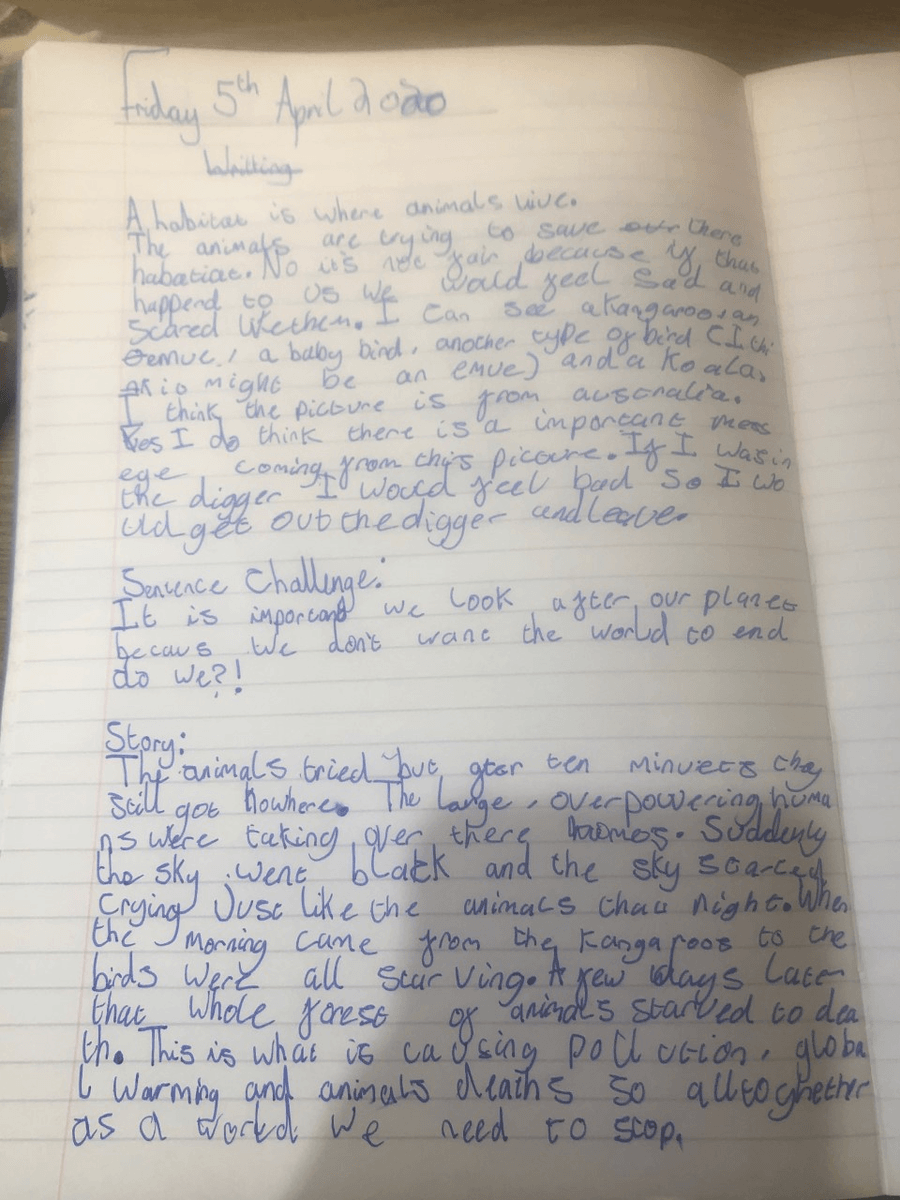 Friday 5th April 2020
Writting
A habitat is where animals live.
The animals are trying to save our there
habatiat. No it's not fair because if that
happend to us we would feel sad and
scared like them. I can see a Kangaroo, an
emue, a baby bird, another type of bird (I thi
nk it might be an emue) and a Koala.
I think the picture is from australia.
Yes I do think there is a important mess
ege coming from this picture. If I was in
the digger I would feel bad so I wo
uld get out the digger and leave.
Sentence Challenge:
It is important we look after our planet
becaus we don't want the world to end
do we?!
Story:
The animals tried but after ten minuets they
still got nowhere. The large, overpowering huma
ns were taking over there homes. Suddenly
the sky went black and the sky started
crying Just like the animals that night. When
the morning came from the Kangaroos to the
birds were all starving. A few days later
that whole forest of animals starved to dea
th. This is what is causing pollution, globa
l warming and animals deaths so alltoghether
as a world we need to stop.